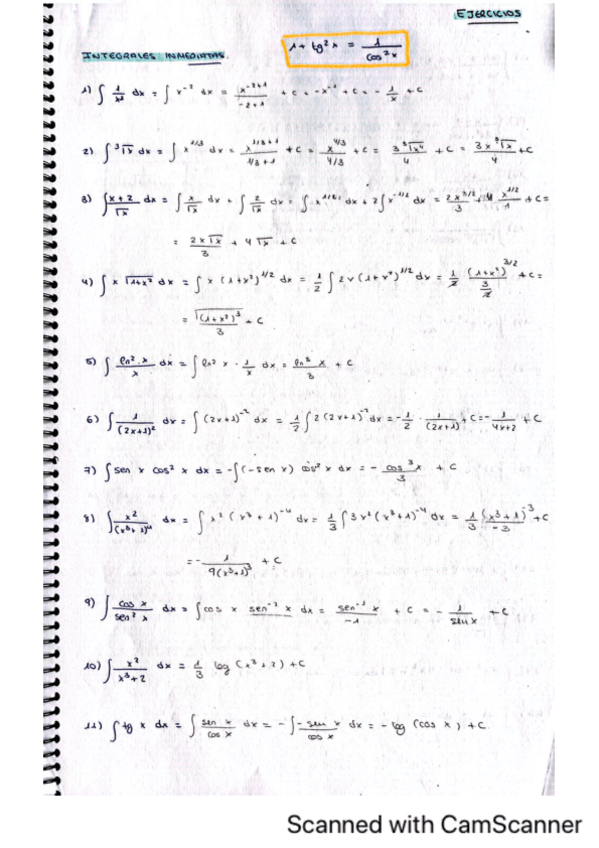 EJERCICIOS
1 + tg² x = 1/cos² x
INTEGRALES INMEDIATAS.
1) ∫ 1/x² dx = ∫ x⁻² dx = x⁻²⁺¹/-2+1 + C = -x⁻¹ + C = - 1/x + C
2) ∫ ³√x dx = ∫ x^(1/3) dx = x^(1/3+1)/(1/3+1) + C = x^(4/3)/(4/3) + C = 3 ³√x⁴/4 + C = 3x ³√x/4 + C
3) ∫ x+2/√x dx = ∫ x/√x dx + ∫ 2/√x dx = ∫ x^(1/2) dx + 2∫ x^(-1/2) dx = 2x^(3/2)/3 + 4 x^(1/2)/1 + C =
= 2x√x/3 + 4√x + C
4) ∫ x √(1+x²) dx = ∫ x (1+x²)^(1/2) dx = 1/2 ∫ 2x (1+x²)^(1/2) dx = 1/2 (1+x²)^(3/2)/(3/2) + C =
= √(1+x²)³/3 + C
5) ∫ ln² x/x dx = ∫ ln² x · 1/x dx = ln³ x/3 + C
6) ∫ 1/(2x+1)² dx = ∫ (2x+1)⁻² dx = 1/2 ∫ 2 (2x+1)⁻² dx = - 1/2 · 1/(2x+1) + C = - 1/4x+2 + C
7) ∫ sen x cos² x dx = -∫ (-sen x) cos² x dx = - cos³ x/3 + C
8) ∫ x²/(x³+1)⁴ dx = ∫ x² (x³+1)⁻⁴ dx = 1/3 ∫ 3x² (x³+1)⁻⁴ dx = 1/3 (x³+1)⁻³/-3 + C
= - 1/9(x³+1)³ + C
9) ∫ cos x/sen² x dx = ∫ cos x sen⁻² x dx = sen⁻¹ x/-1 + C = - 1/sen x + C
10) ∫ x²/x³+2 dx = 1/3 log (x³+2) + C
11) ∫ tg x dx = ∫ sen x/cos x dx = -∫ -sen x/cos x dx = - log (cos x) + C.
Scanned with CamScanner